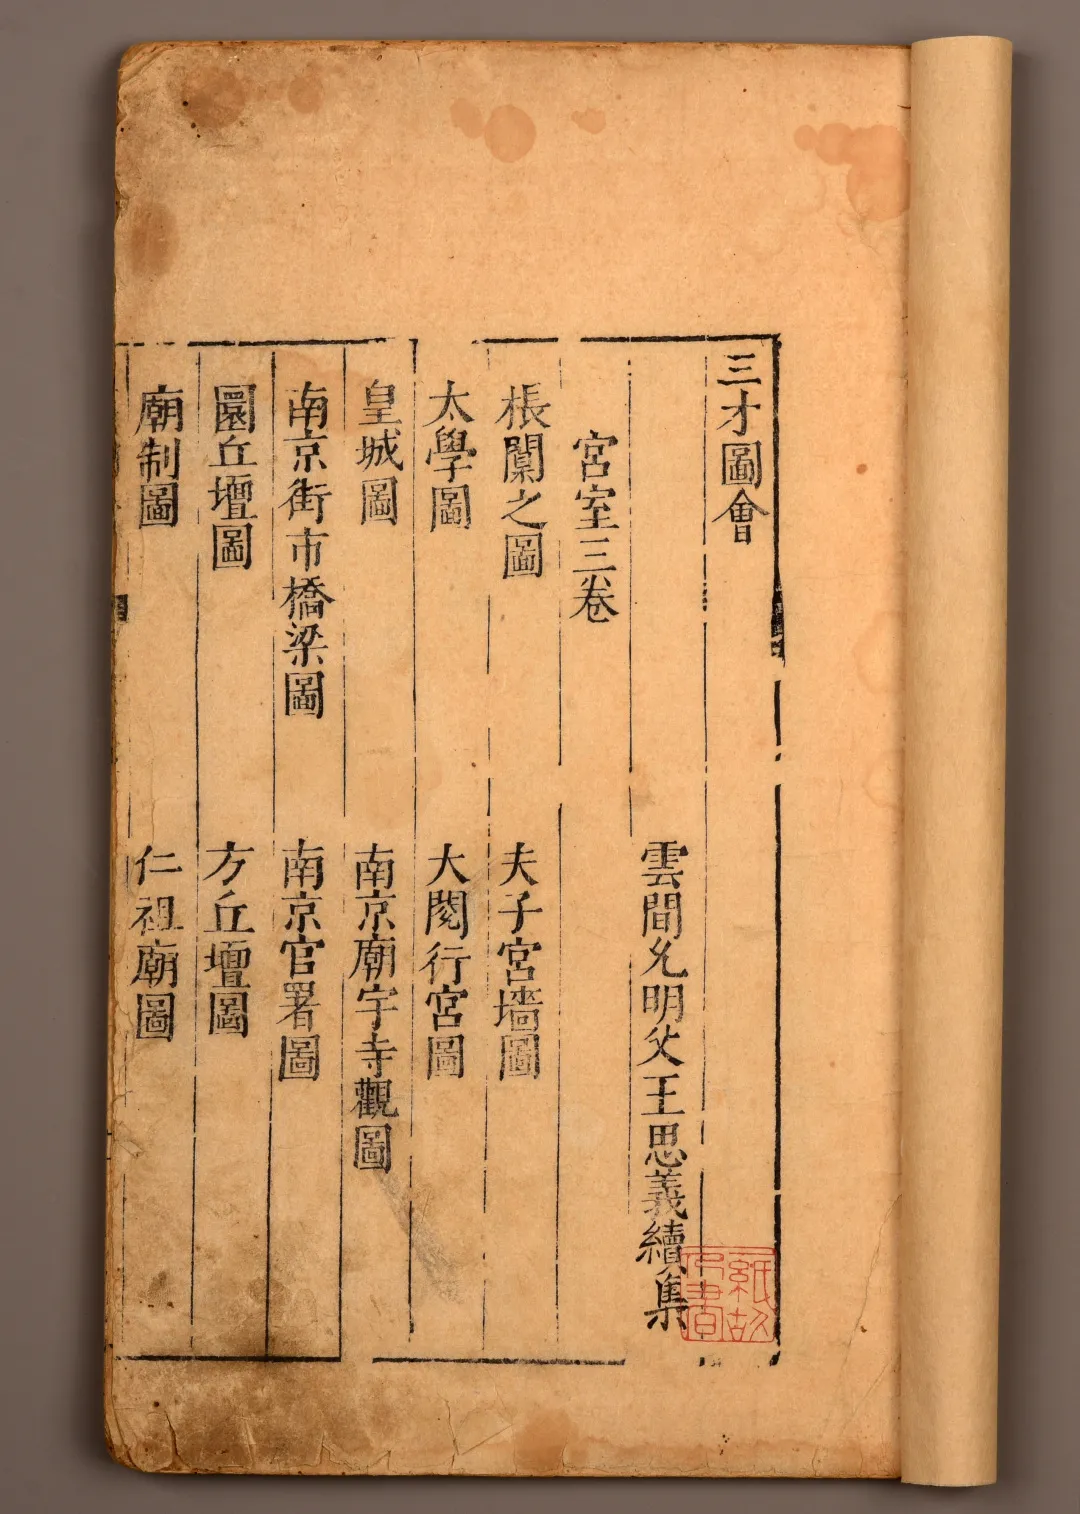 三才圖會
雲間允明父王思義續集
宮室三卷
棖闑之圖 夫子宮墻圖
太學圖 大閱行宮圖
皇城圖 南京廟宇寺觀圖
南京街市橋梁圖 南京官署圖
圜丘壇圖 方丘壇圖
廟制圖 仁祖廟圖